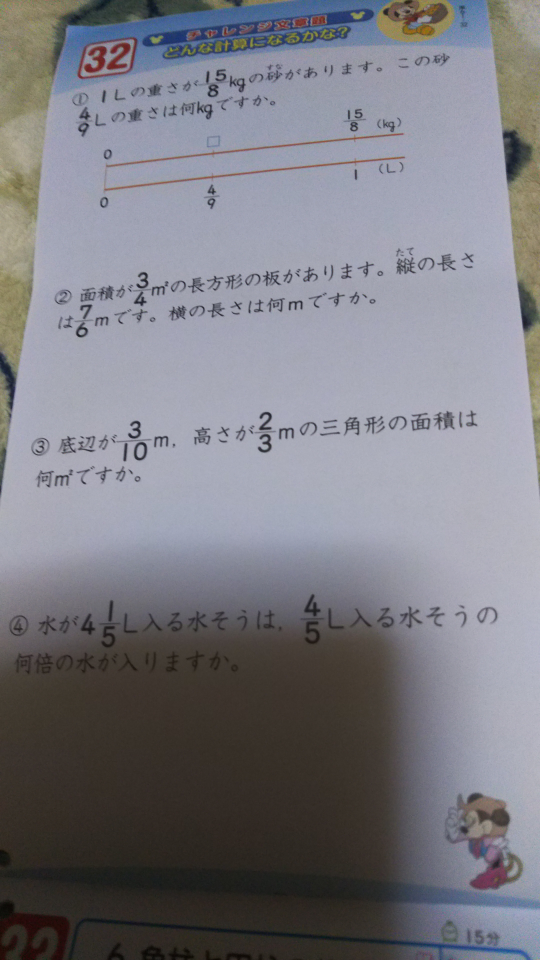 32
チャレンジ文章題
どんな計算になるかな?
① 1Lの重さが15/8kgの砂があります。この砂
すな
4/9Lの重さは何kgですか。
0 □ 15/8 (kg)
0 4/9 1 (L)
② 面積が3/4m²の長方形の板があります。縦の長さ
たて
は7/6mです。横の長さは何mですか。
③ 底辺が3/10m,高さが2/3mの三角形の面積は
何m²ですか。
④ 水が4 1/5L入る水そうは,4/5L入る水そうの
何倍の水が入りますか。
15分